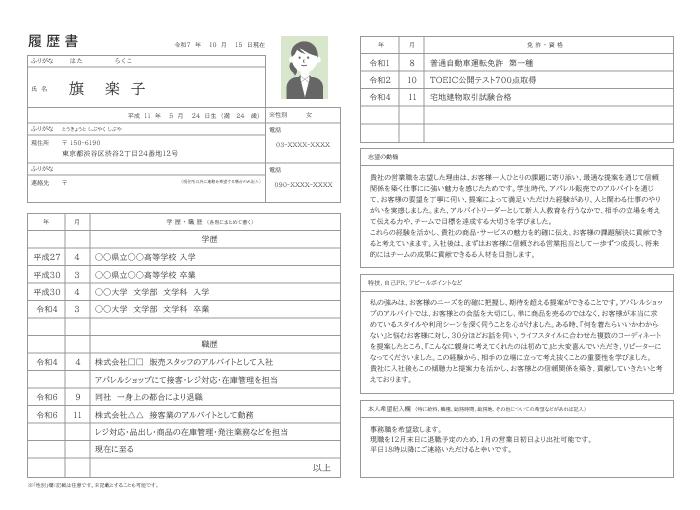 履歴書
令和7 年 10 月 15 日現在
ふりがな はた らくこ
氏名 旗 楽 子
平成 11 年 5 月 24 日生 (満 24 歳)
※性別 女
ふりがな とうきょうと しぶやく しぶや
現住所 〒150-6190
東京都渋谷区渋谷2丁目24番地12号
電話
03-XXXX-XXXX
ふりがな
連絡先 〒 (現住所以外に連絡を希望する場合のみ記入)
電話
090-XXXX-XXXX
年 月 学歴・職歴 (各別にまとめて書く)
学歴
平成27 4 〇〇県立〇〇高等学校 入学
平成30 3 〇〇県立〇〇高等学校 卒業
平成30 4 〇〇大学 文学部 文学科 入学
令和4 3 〇〇大学 文学部 文学科 卒業
職歴
令和4 4 株式会社□□ 販売スタッフのアルバイトとして入社
アパレルショップにて接客・レジ対応・在庫管理を担当
令和6 9 同社 一身上の都合により退職
令和6 11 株式会社△△ 接客業のアルバイトとして勤務
レジ対応・品出し・商品の在庫管理・発注業務などを担当
現在に至る
以上
※「性別」欄:記載は任意です。未記載とすることも可能です。
年 月 免許・資格
令和1 8 普通自動車運転免許 第一種
令和2 10 TOEIC公開テスト700点取得
令和4 11 宅地建物取引試験合格
志望の動機
貴社の営業職を志望した理由は、お客様一人ひとりの課題に寄り添い、最適な提案を通じて信頼
関係を築く仕事にに強い魅力を感じたためです。学生時代、アパレル販売でのアルバイトを通じ
て、お客様の要望を丁寧に伺い、提案によって満足いただけた経験があり、人と関わる仕事のやり
がいを実感しました。また、アルバイトリーダーとして新人人教育を行うなかで、相手の立場を考え
て伝える力や、チームで目標を達成する大切さを学びました。
これらの経験を活かし、貴社の商品・サービスの魅力を的確に伝え、お客様の課題解決に貢献でき
ると考えています。入社後は、まずはお客様に信頼される営業担当として一歩ずつ成長し、将来
的にはチームの成果に貢献できる人材を目指します。
特技、自己PR、アピールポイントなど
私の強みは、お客様のニーズを的確に把握し、期待を超える提案ができることです。アパレルショッ
プのアルバイトでは、お客様との会話を大切にし、単に商品を売るのではなく、お客様が本当に求
めているスタイルや利用シーンを深く伺うことを心がけました。ある時、「何を着たらいいかわから
ない」と悩むお客様に対し、30分ほどお話を伺い、ライフスタイルに合わせた複数のコーディネート
を提案したところ、「こんなに親身に考えてくれたのは初めて」と大変喜んでいただき、リピーターに
なってくださいました。この経験から、相手の立場に立って考え抜くことの重要性を学びました。
貴社に入社後もこの傾聴力と提案力を活かし、お客様との信頼関係を築き、貢献していきたいと考
えております。
本人希望記入欄 (特に給料、職種、勤務時間、勤務地、その他についての希望などがあれば記入)
事務職を希望致します。
現職を12月末日に退職予定のため、1月の営業日初日より出社可能です。
平日18時以降にご連絡いただけると幸いです。